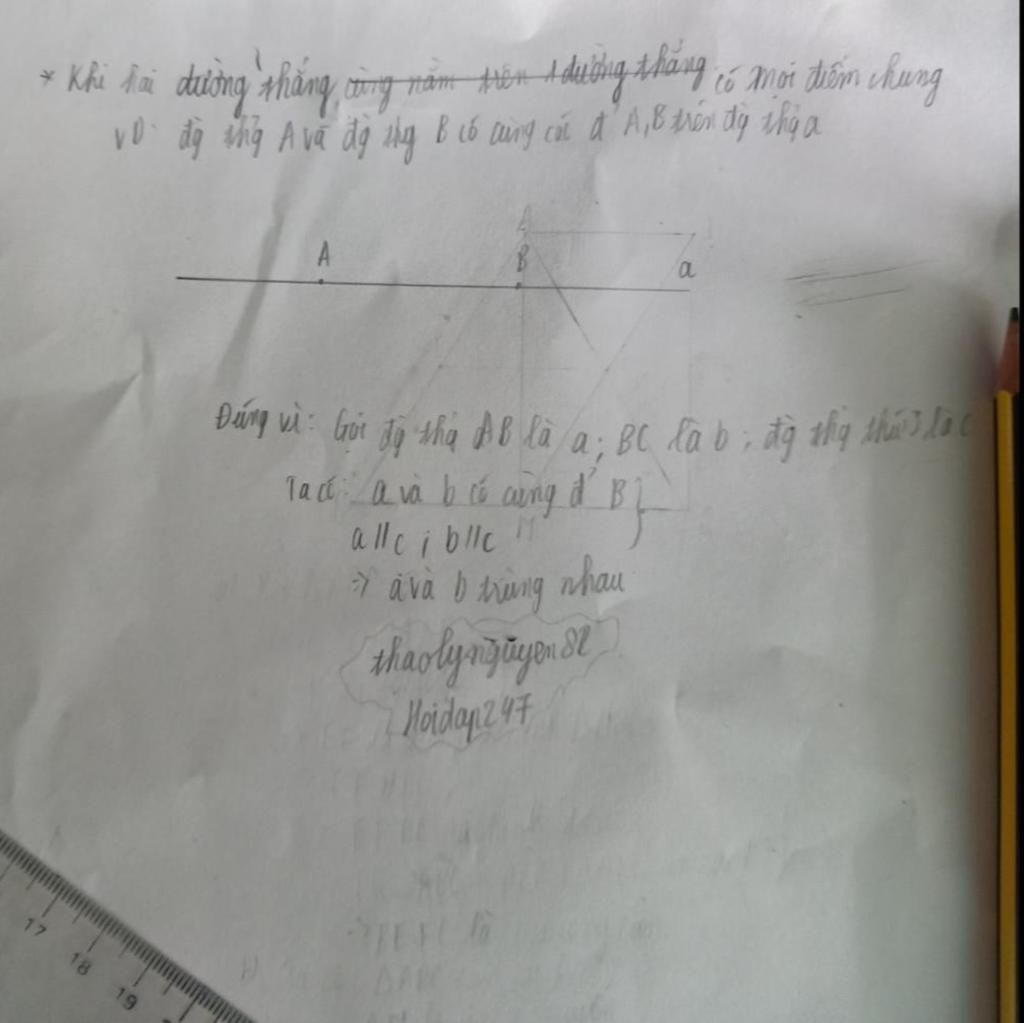 * Khi hai đường thẳng cùng nằm trên 1 đường thẳng có mọi điểm chung
VD: đg thg A và đg thg B có cùng các đ' A,B trên đg thg a
A
B
a
Đúng vì: Gọi đg thg AB là a; BC là b; đg thg thứ 3 là c
Ta có: a và b có cùng đ' B
a//c ; b//c
=> a và b trùng nhau
thaolynguyen82
Hoidap247
17
18
19